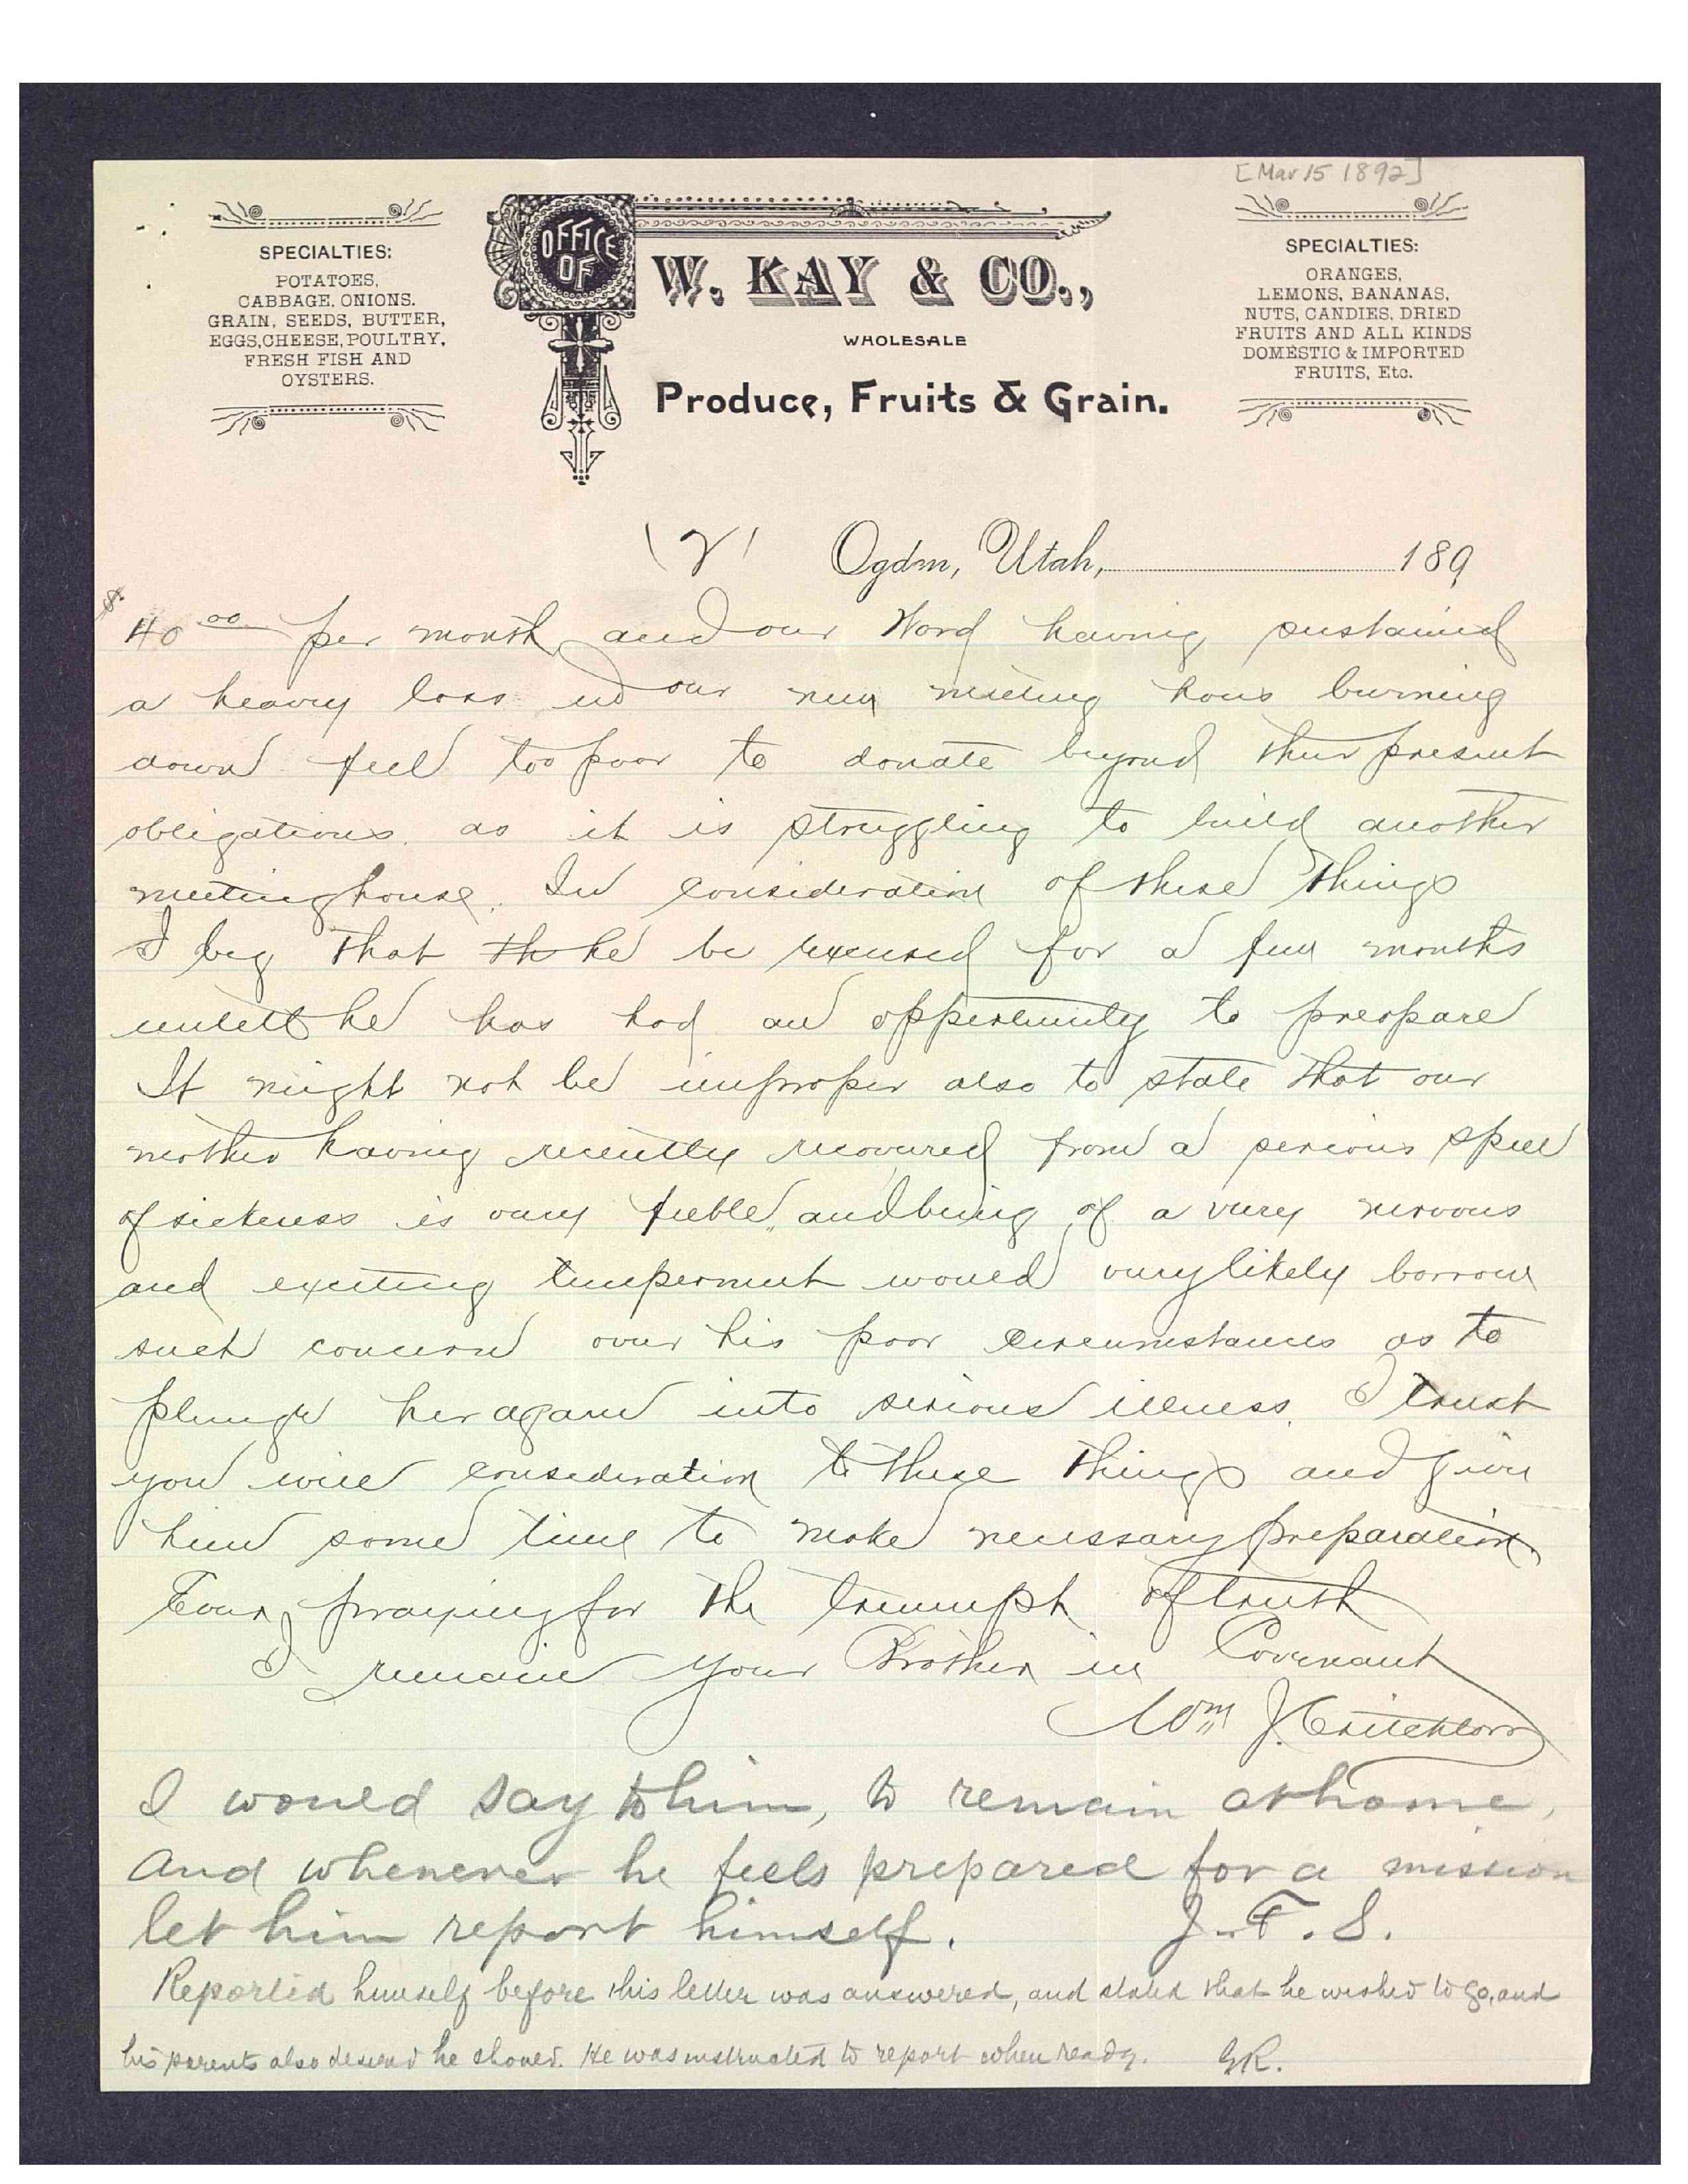 [Mar 15 1892]
SPECIALTIES:
POTATOES,
CABBAGE, ONIONS.
GRAIN, SEEDS, BUTTER,
EGGS, CHEESE, POULTRY,
FRESH FISH AND
OYSTERS.
OFFICE
OF
W. KAY & CO.,
WHOLESALE
Produce, Fruits & Grain.
SPECIALTIES:
ORANGES,
LEMONS, BANANAS,
NUTS, CANDIES, DRIED
FRUITS AND ALL KINDS
DOMESTIC & IMPORTED
FRUITS, Etc.
(2) Ogden, Utah, 189
$40 00 per month and our Ward having sustained
a heavy loss in our new meeting hous burning
down feel too poor to donate beyond their present
obligations. as it is struggling to build another
meeting house. In consideration of these things
I beg that th he be excused for a few months
untill he has had an oppertunity to preopare
It might not be improper also to state that our
mother having recently recovered from a serious spell
of sickness is very feeble, and being of a very nervous
and exciting temperment would very likely borrow
such concern over his poor circumstances as to
plunge her again into serious illness. I trust
you will consideration to these things and give
him some time to make necessary preparation.
Ever praying for the triumph of truth
I remain your Brother in Covenant
Wm J. Critchlow
I would say to him, to remain at home,
and whenever he feels prepared for a mission
let him report himself. J. F. S.
Reported himself before this letter was answered, and stated that he wished to go, and
his parents also desired he should. He was instructed to report when ready. GR.